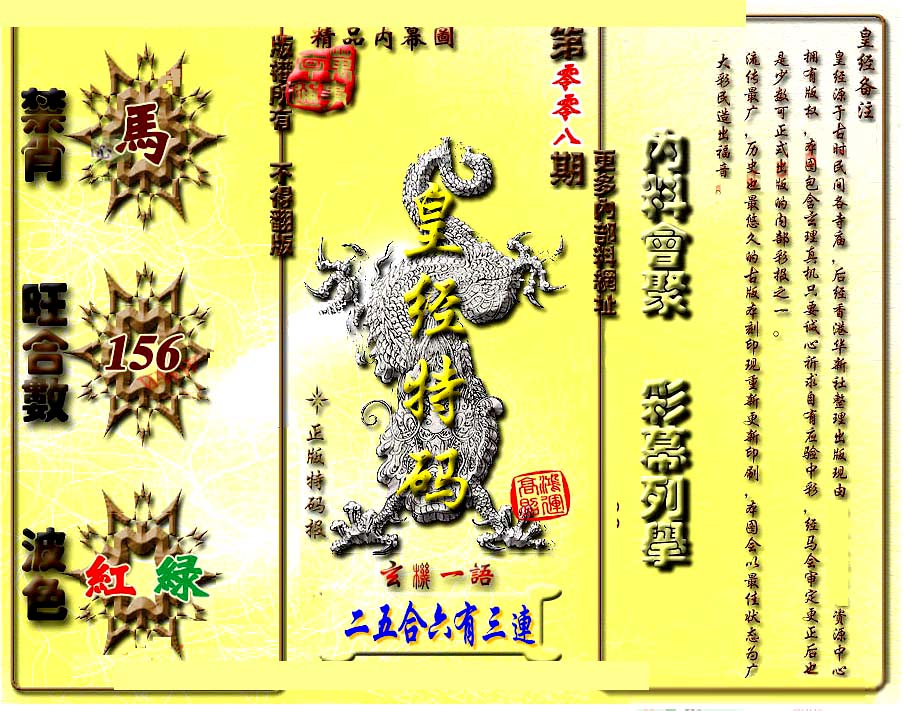 皇经备注
皇经源于古时民间各寺庙，后经香港华新社整理出版现由
资源中心
拥有版权，本图包含玄理真机只要诚心祈求自有应验中彩，经马会审定更正后也
是少数可正式出版的内部彩报之一。
流传最广，历史也最悠久的古版本刻印现重新更新印刷，本图会以最佳状态为广
大彩民造出福音
内料會聚
彩幕列舉
更多内部料網址
第零零八期
精品内幕圖
皇经特码
正版特码报
鴻運
高照
玄機一語
二五合六有三連
版權所有
不得翻版
禁肖
馬
旺合數
156
波色
紅 綠